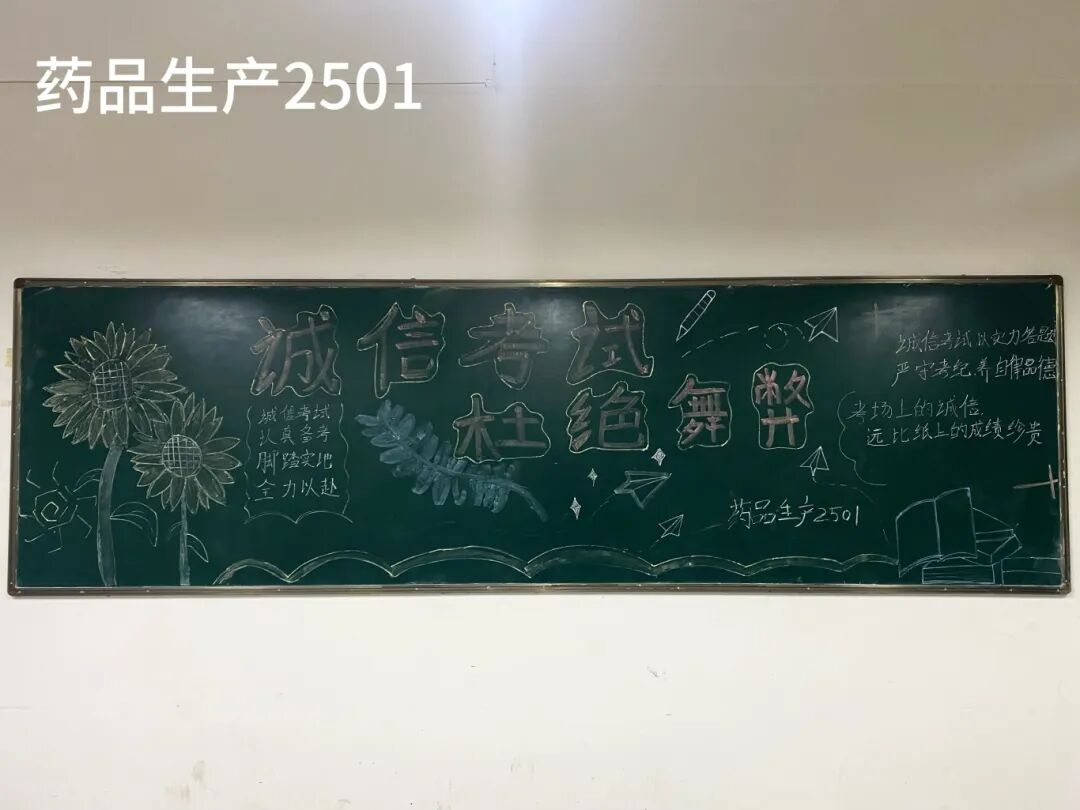 药品生产2501
诚信考试
杜绝舞弊
诚信考试
认真备考
脚踏实地
全力以赴
诚信考试以实力答题
严守考纪,养自律品德
考场上的诚信,
远比纸上的成绩珍贵
药品生产2501